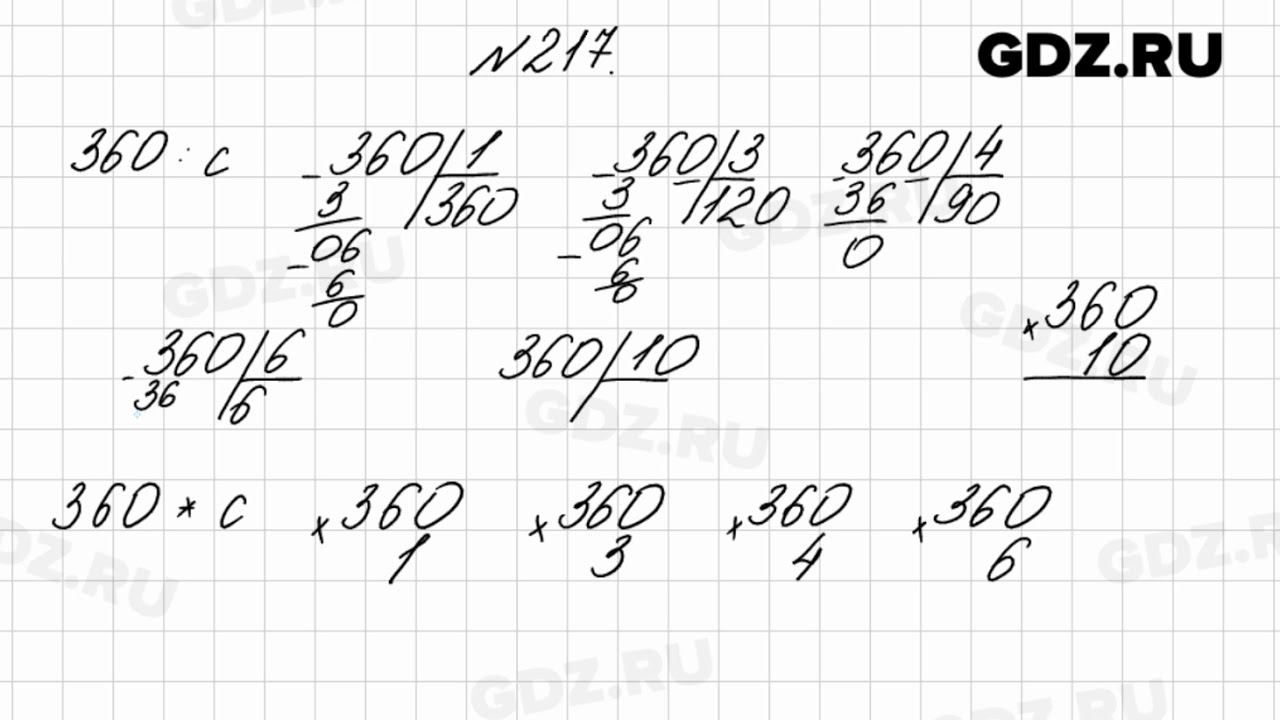 GDZ.RU
№217.
360 : c
- 360 | 1
3 | 360
- 06
6
0
- 360 | 3
3 | 120
- 06
6
0
- 360 | 4
36 | 90
0
- 360 | 6
36 | 6
360 | 10
× 360
10
360 * c
× 360
1
× 360
3
× 360
4
× 360
6
GDZ.RU
GDZ.RU
GDZ.RU
GDZ.RU
GDZ.RU
GDZ.RU
GDZ.RU
GDZ.RU
GDZ.RU